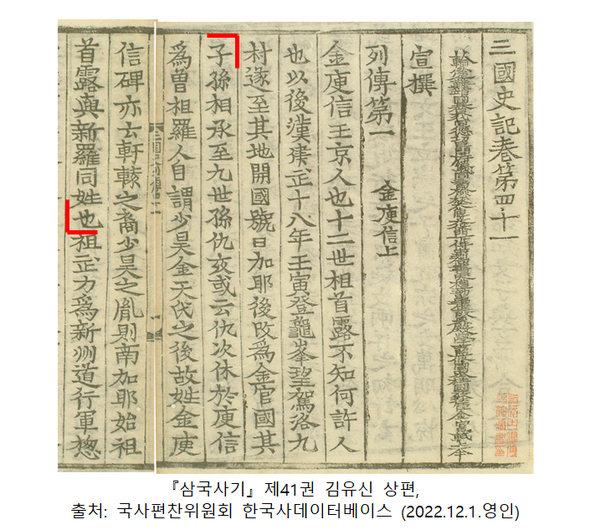 三國史記卷第四十一
金富軾奉
宣撰
列傳第一
金庾信上
金庾信王京人也十二世祖首露不知何許人
也以後漢建武十八年壬寅登龜峯望駕洛九
村遂至其地開國號曰加耶後改爲金官國其
子孫相承至九世孫仇亥或云仇次休於庾信
爲曾祖羅人自謂少昊金天氏之後故姓金庾
信碑亦云軒轅之裔少昊之胤則南加耶始祖
首露與新羅同姓也祖武力爲新州道行軍惣
『삼국사기』 제41권 김유신 상편,
출처: 국사편찬위원회 한국사데이터베이스 (2022.12.1.영인)